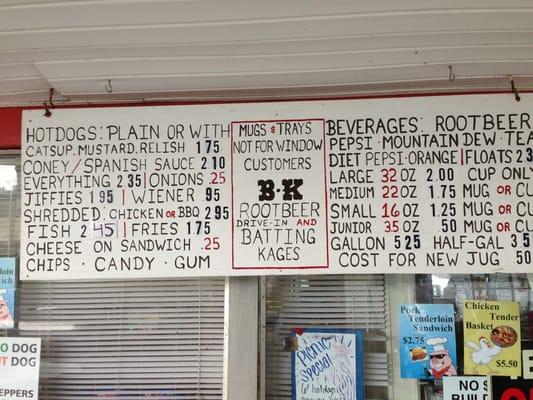 HOTDOGS: PLAIN OR WITH
CATSUP, MUSTARD, RELISH 1 75
CONEY / SPANISH SAUCE 2 10
EVERYTHING 2 35 | ONIONS .25
JIFFIES 1 95 | WIENER 95
SHREDDED: CHICKEN OR BBQ 2 95
FISH 2 45 | FRIES 1 75
CHEESE ON SANDWICH .25
CHIPS · CANDY · GUM
MUGS & TRAYS
NOT FOR WINDOW
CUSTOMERS
B·K
ROOTBEER
DRIVE-IN AND
BATTING
KAGES
BEVERAGES: ROOTBEER
PEPSI · MOUNTAIN DEW · TEA
DIET PEPSI · ORANGE | FLOATS 2
LARGE 32 OZ 2.00 CUP ONLY
MEDIUM 22 OZ 1.75 MUG OR CU
SMALL 16 OZ 1.25 MUG OR CU
JUNIOR 35 OZ .50 MUG OR CU
GALLON 5 25 HALF-GAL 3
COST FOR NEW JUG .50
DOG
UT DOG
EPPERS
Picnic
Special
6 hotdogs
Pork
Tenderloin
Sandwich
$2.75
Chicken
Tender
Basket
$5.50
NO S
BUIL